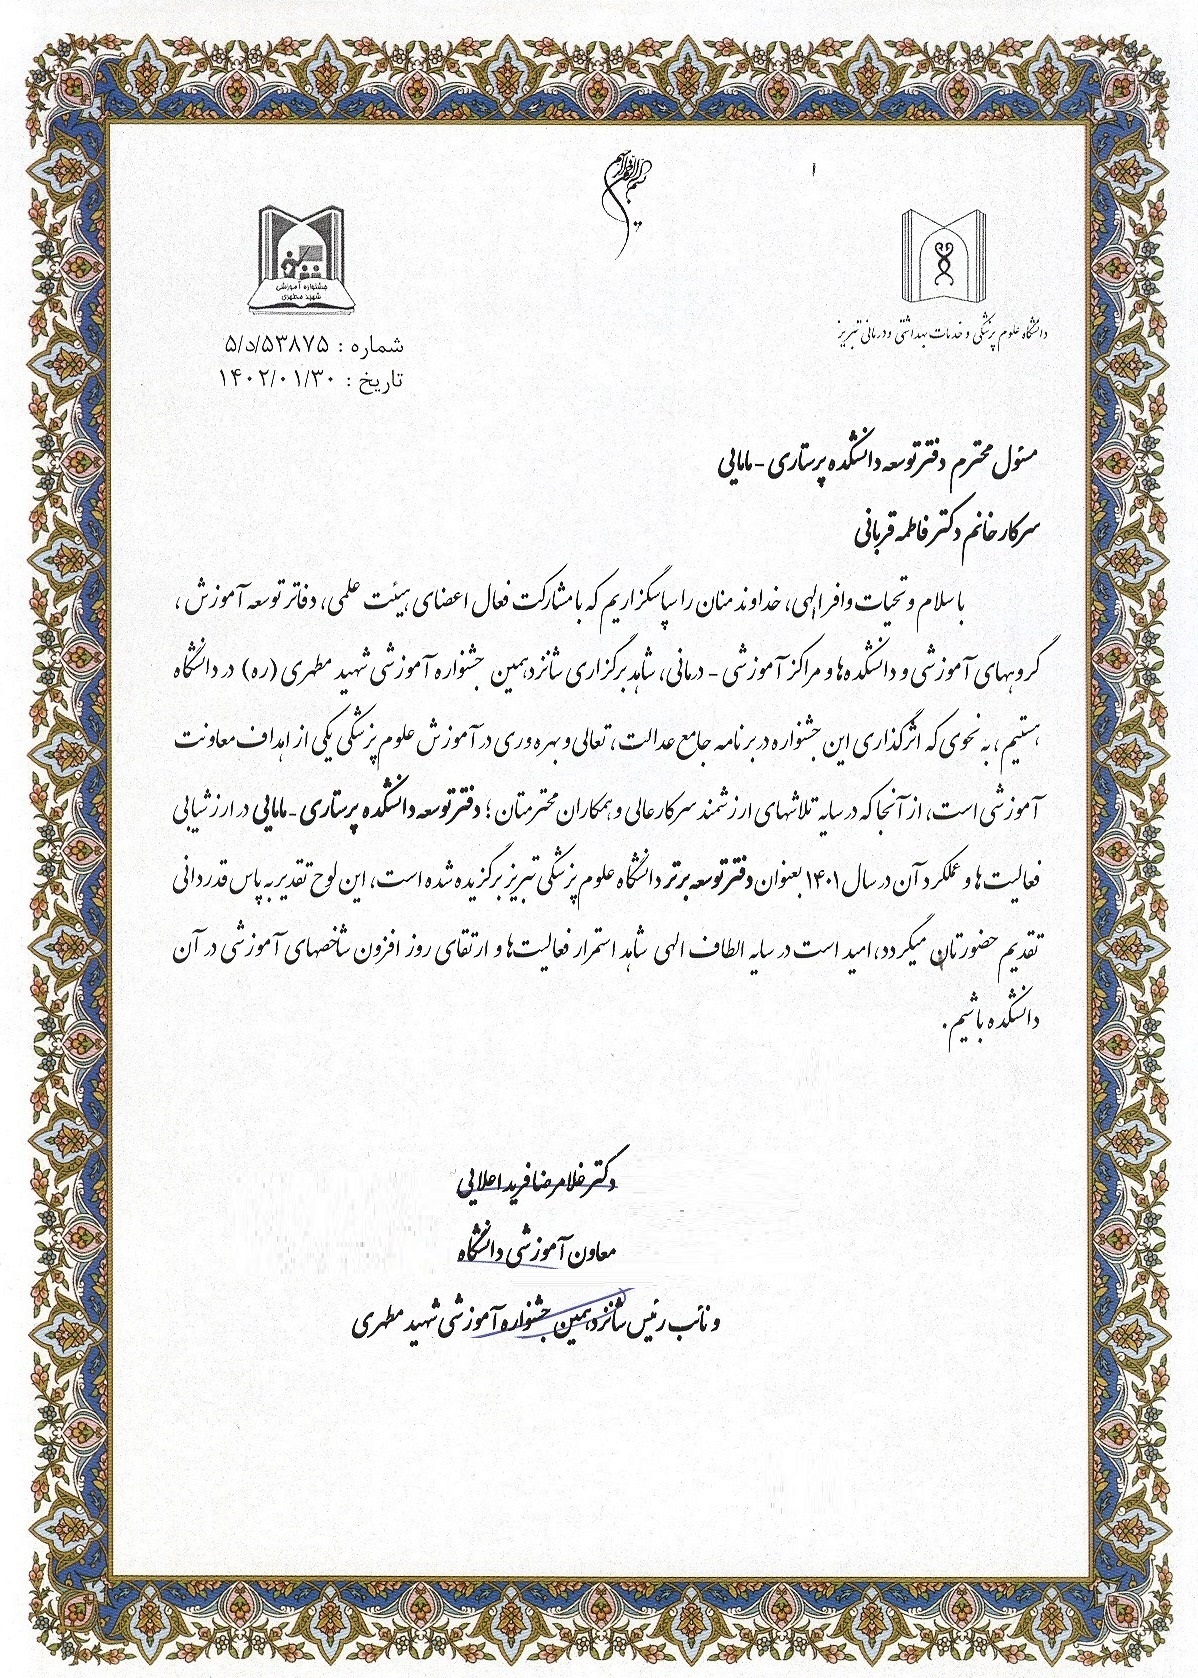 بسم الله الرحمن الرحیم
دانشگاه علوم پزشکی و خدمات بهداشتی و درمانی تبریز
جشنواره آموزشی
شهید مطهری
شماره : ۵/د/۵۳۸۷۵
تاریخ : ۱۴۰۲/۰۱/۳۰
مسئول محترم دفتر توسعه دانشکده پرستاری - مامایی
سرکار خانم دکتر فاطمه قربانی
با سلام و تحیات وافر الهی، خداوند منان را سپاسگزاریم که با مشارکت فعال اعضای هیئت علمی، دفاتر توسعه آموزش ،
گروههای آموزشی و دانشکده ها و مراکز آموزشی - درمانی، شاهد برگزاری شانزدهمین جشنواره آموزشی شهید مطهری (ره) در دانشگاه
هستیم، به نحوی که اثرگذاری این جشنواره در برنامه جامع عدالت، تعالی و بهره وری در آموزش علوم پزشکی یکی از اهداف معاونت
آموزشی است، از آنجا که در سایه تلاشهای ارزشمند سرکار عالی و همکاران محترمتان ؛ دفتر توسعه دانشکده پرستاری - مامایی در ارزشیابی
فعالیت ها و عملکرد آن در سال ۱۴۰۱ بعنوان دفتر توسعه برتر دانشگاه علوم پزشکی تبریز برگزیده شده است، این لوح تقدیر به پاس قدردانی
تقدیم حضورتان میگردد، امید است در سایه الطاف الهی شاهد استمرار فعالیت ها و ارتقای روز افزون شاخصهای آموزشی در آن
دانشکده باشیم.
دکتر غلامرضا فرید اعلایی
معاون آموزشی دانشگاه
و نائب رئیس شانزدهمین جشنواره آموزشی شهید مطهری